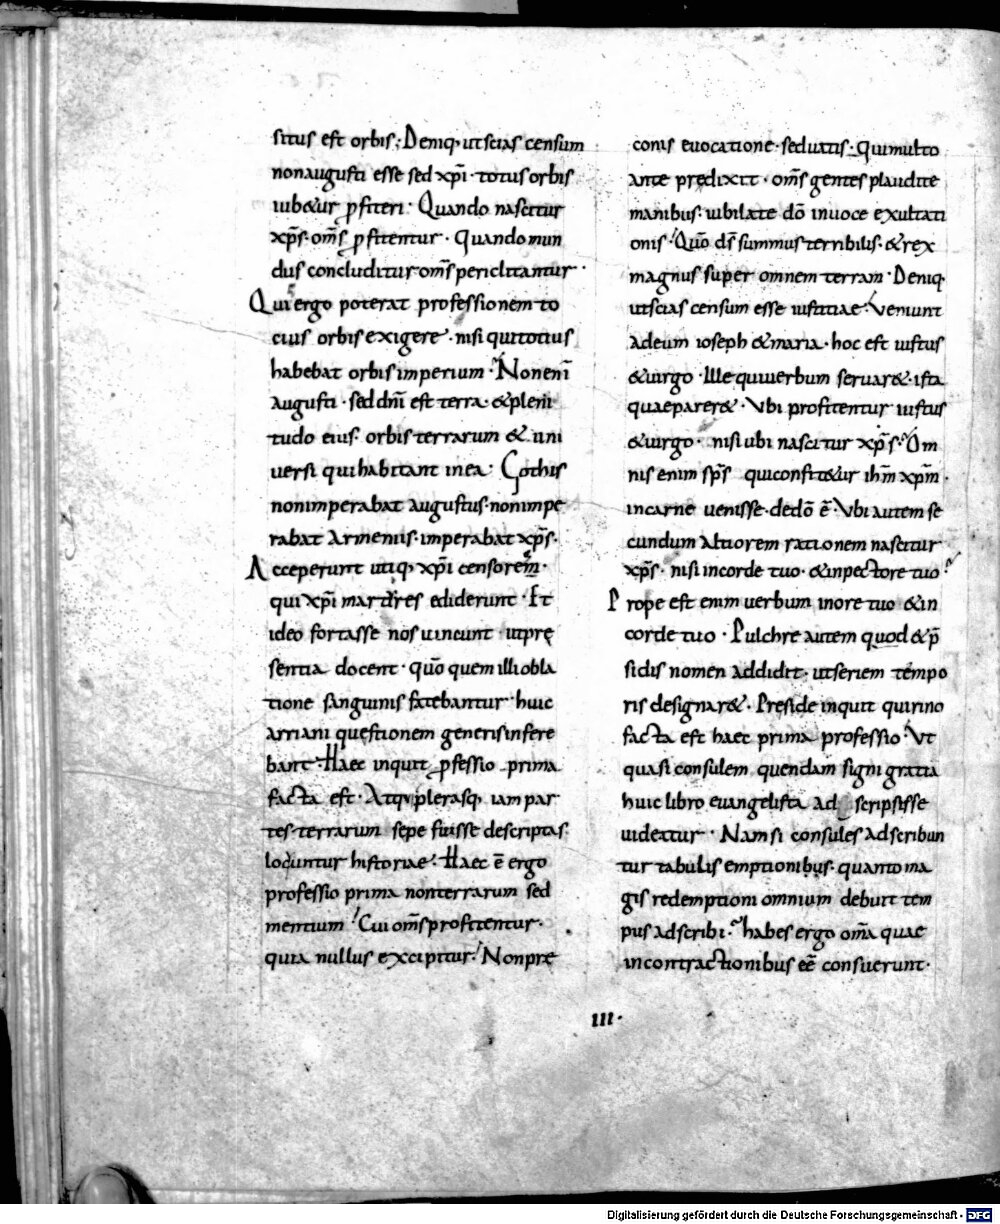 situs est orbis; Deniq; ut scias censum
non augusti esse sed xp̄i · totus orbis
iub&ur ꝓfiteri · Quando nascitur
xp̄s · om̄s ꝓfitentur · Quando mun
dus concluditur om̄s periclitantur ·
Qui ergo poterat professionem to
cius orbis exigere · nisi qui totius
habebat orbis imperium · Non enī
augusti · sed dn̄i est terra · & pleni
tudo eius · orbis terrarum & uni
uersi qui habitant in ea · Gothis
non imperabat augustus · non impe
rabat armeniis · imperabat xp̄s ·
Acceperunt utiq; xp̄i censorem ·
qui xp̄i martyres ediderunt · Et
ideo fortasse nos uincunt · ut prę
sentia docent · quō quem illi obla
tione sanguinis fatebantur · huic
arriani questionem generis infere
bant · Haec inquit ꝓfessio prima
facta est · Atq; plerasq; iam par
tes terrarum sepe fuisse descriptas
locuntur historiae · Haec ē ergo
professio prima non terrarum sed
mentium · Cui om̄s profitentur ·
quia nullus excipitur · Non prę
conis euocatione · sed uatis · qui multo
ante prędixit · om̄s gentes plaudite
manibus · iubilate dō in uoce exultati
onis · Quō ds̄ summus terribilis · & rex
magnus super omnem terram · Deniq;
ut scias censum esse iustitiae · Veniunt
ad eum ioseph & maria · hoc est iustus
& uirgo · Ille qui uerbum seruar& · ista
quae parer& · Vbi profitentur iustus
& uirgo · nisi ubi nascitur xp̄s · Om
nis enim sp̄s qui confit&ur ih̄m xp̄m ·
in carne uenisse · de dō ē · Vbi autem se
cundum altiorem rationem nascitur
xp̄s · nisi in corde tuo · & in pectore tuo
Prope est enim uerbum in ore tuo & in
corde tuo · Pulchre autem quod & p̄
sidis nomen addidit · ut seriem tempo
ris designar& · Preside inquit quirino
facta est haec prima professio · Vt
quasi consulem quendam signi gratia
huic libro euangelista ad scripsisse
uideatur · Nam si consules adscribun
tur tabulis emptionibus · quanto ma
gis redemptioni omnium debuit tem
pus adscribi · habes ergo om̄a quae
in contractionibus eē consuerunt ·
III ·
Digitalisierung gefördert durch die Deutsche Forschungsgemeinschaft - DFG